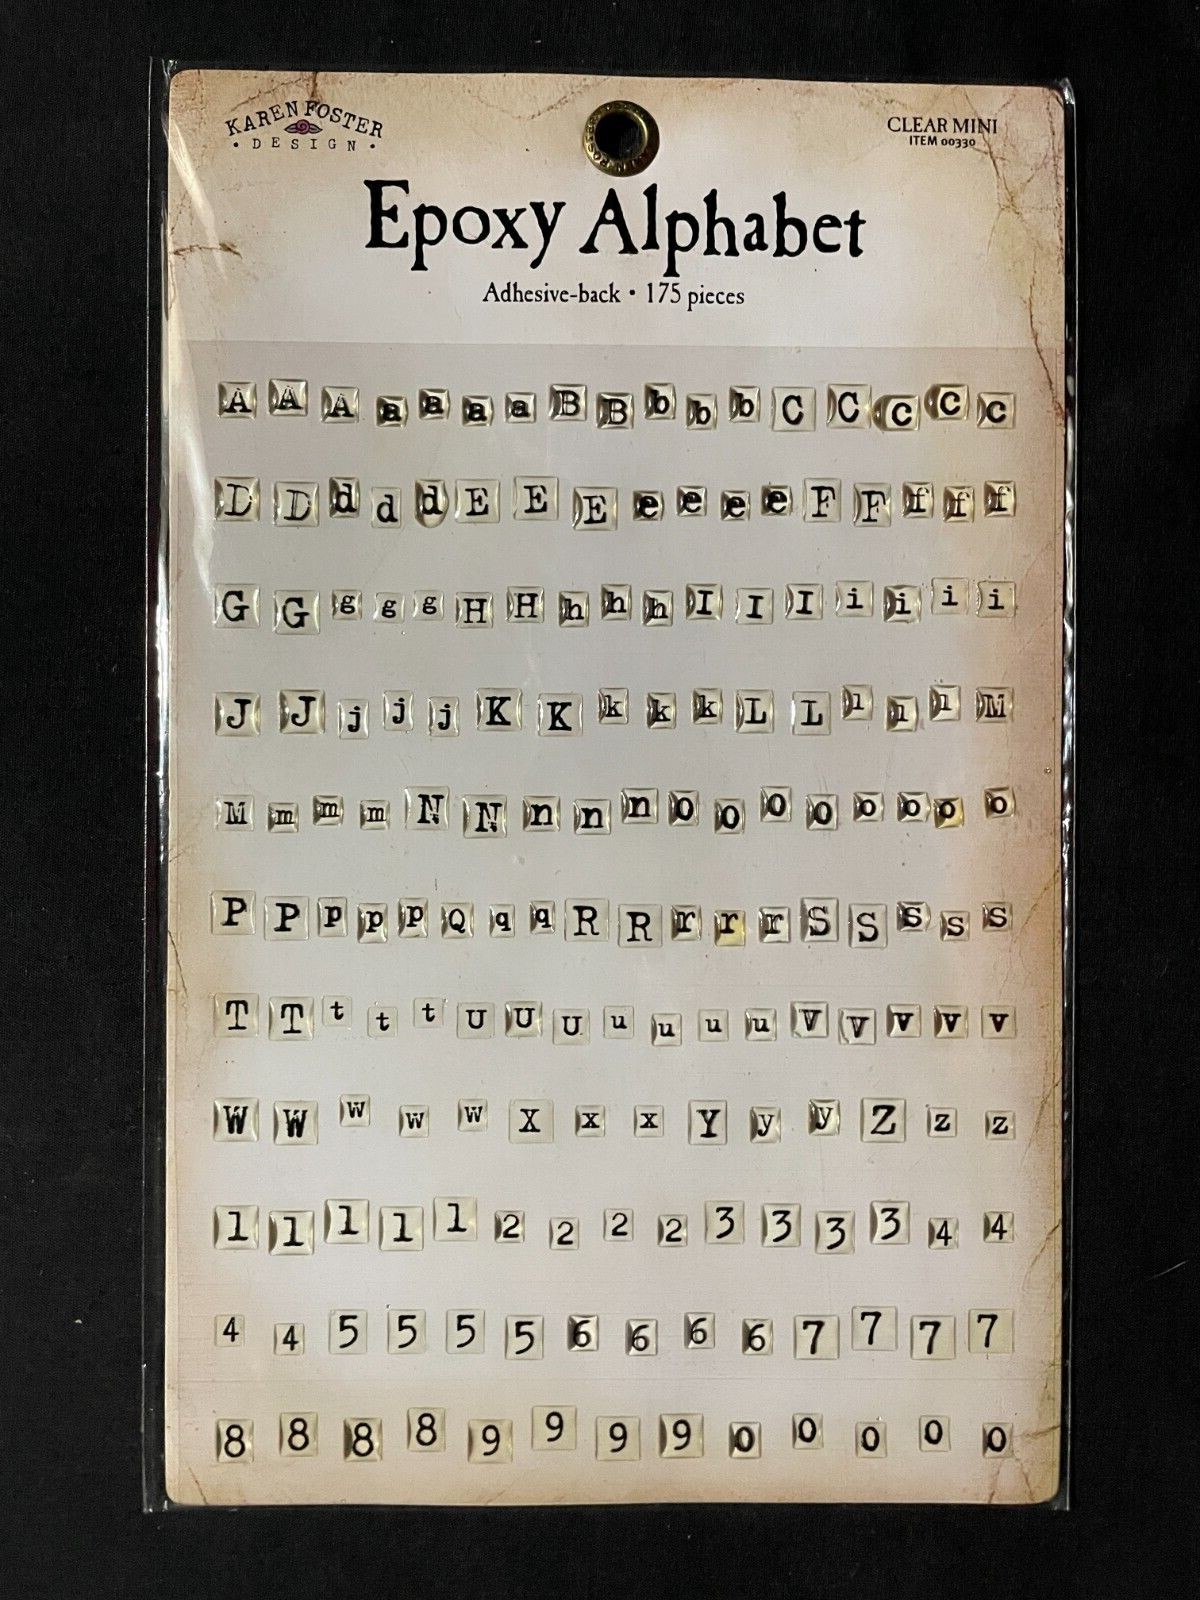 KAREN FOSTER
• DESIGN •
CLEAR MINI
ITEM 00330
Epoxy Alphabet
Adhesive-back • 175 pieces
A A A a a a a B B b b b C C c c c
D D d d d E E E e e e e F F f f f
G G g g g H H h h h I I I i i i i
J J j j j K K k k k L L l l l M
M m m m N N n n n o o o o o o o o
P P p p p Q q q R R r r r S S s s s
T T t t t U U U u u u u V V v v v
W W w w w X x x Y y y Z z z
1 1 1 1 1 2 2 2 2 3 3 3 3 4 4
4 4 5 5 5 5 6 6 6 6 7 7 7 7
8 8 8 8 9 9 9 9 0 0 0 0 0